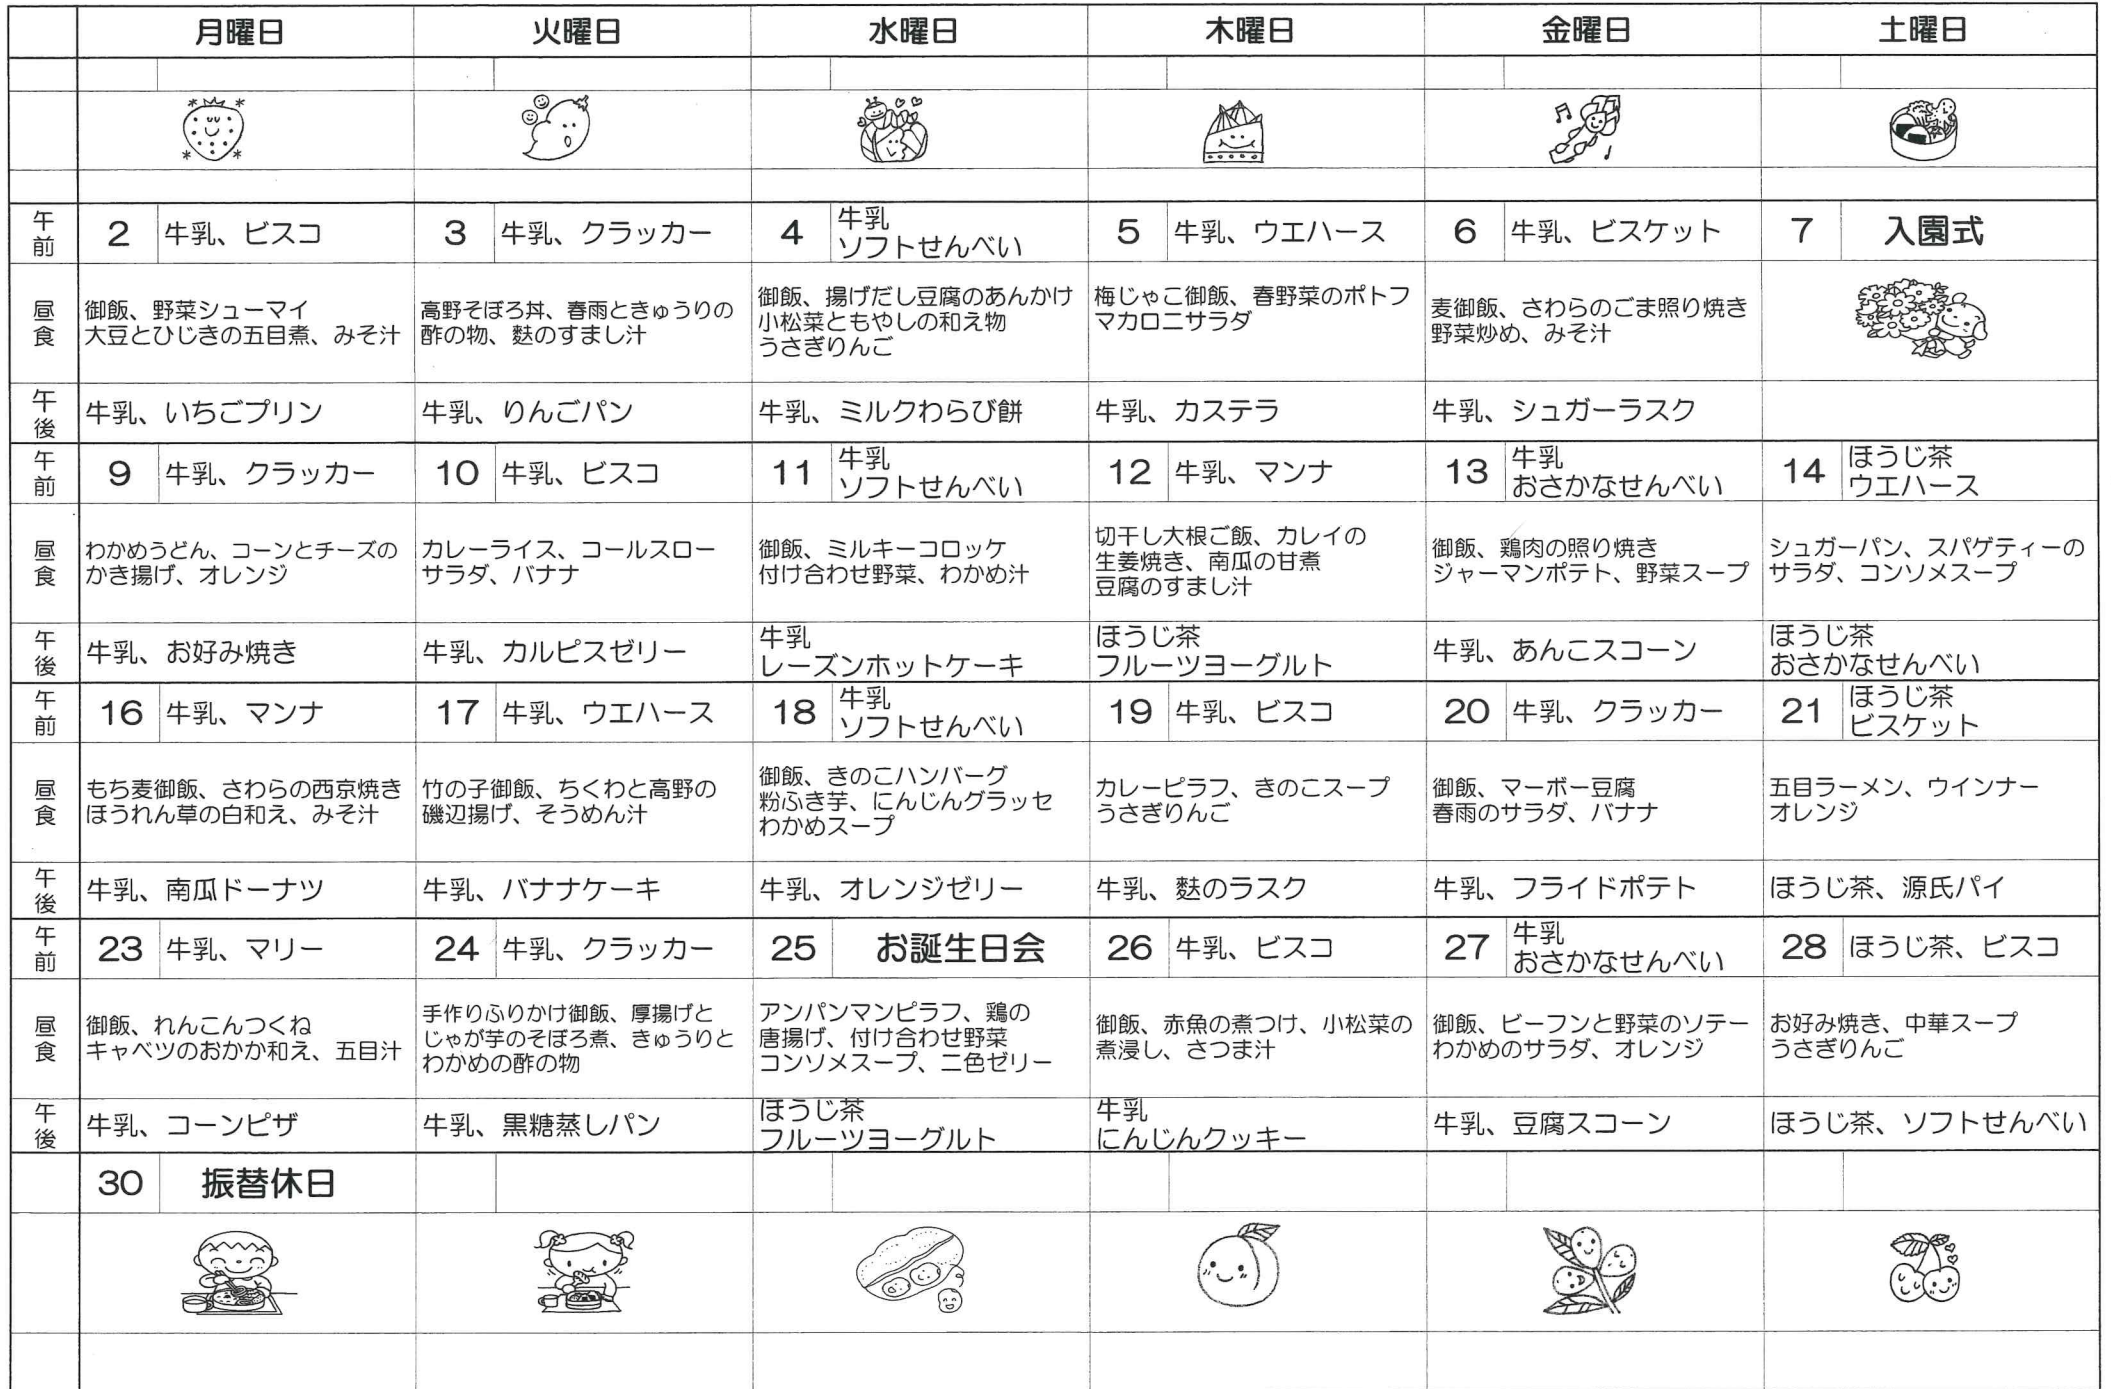 月曜日 火曜日 水曜日 木曜日 金曜日 土曜日
午前 2 牛乳、ビスコ 3 牛乳、クラッカー 4 牛乳 5 牛乳、ウエハース 6 牛乳、ビスケット 7 入園式
ソフトせんべい
昼食
御飯、野菜シューマイ
大豆とひじきの五目煮、みそ汁
高野そぼろ丼、春雨ときゅうりの
酢の物、麩のすまし汁
御飯、揚げだし豆腐のあんかけ
小松菜ともやしの和え物
うさぎりんご
梅じゃこ御飯、春野菜のポトフ
マカロニサラダ
麦御飯、さわらのごま照り焼き
野菜炒め、みそ汁
午後 牛乳、いちごプリン 牛乳、りんごパン 牛乳、ミルクわらび餅 牛乳、カステラ 牛乳、シュガーラスク
午前 9 牛乳、クラッカー 10 牛乳、ビスコ 11 牛乳 12 牛乳、マンナ 13 牛乳 14 ほうじ茶
ソフトせんべい おさかなせんべい ウエハース
昼食
わかめうどん、コーンとチーズの
かき揚げ、オレンジ
カレーライス、コールスロー
サラダ、バナナ
御飯、ミルキーコロッケ
付け合わせ野菜、わかめ汁
切干し大根ご飯、カレイの
生姜焼き、南瓜の甘煮
豆腐のすまし汁
御飯、鶏肉の照り焼き
ジャーマンポテト、野菜スープ
シュガーパン、スパゲティーの
サラダ、コンソメスープ
午後 牛乳、お好み焼き 牛乳、カルピスゼリー 牛乳 ほうじ茶 牛乳、あんこスコーン ほうじ茶
レーズンホットケーキ フルーツヨーグルト おさかなせんべい
午前 16 牛乳、マンナ 17 牛乳、ウエハース 18 牛乳 19 牛乳、ビスコ 20 牛乳、クラッカー 21 ほうじ茶
ソフトせんべい ビスケット
昼食
もち麦御飯、さわらの西京焼き
ほうれん草の白和え、みそ汁
竹の子御飯、ちくわと高野の
磯辺揚げ、そうめん汁
御飯、きのこハンバーグ
粉ふき芋、にんじんグラッセ
わかめスープ
カレーピラフ、きのこスープ
うさぎりんご
御飯、マーボー豆腐
春雨のサラダ、バナナ
五目ラーメン、ウインナー
オレンジ
午後 牛乳、南瓜ドーナツ 牛乳、バナナケーキ 牛乳、オレンジゼリー 牛乳、麩のラスク 牛乳、フライドポテト ほうじ茶、源氏パイ
午前 23 牛乳、マリー 24 牛乳、クラッカー 25 お誕生日会 26 牛乳、ビスコ 27 牛乳 28 ほうじ茶、ビスコ
おさかなせんべい
昼食
御飯、れんこんつくね
キャベツのおかか和え、五目汁
手作りふりかけ御飯、厚揚げと
じゃが芋のそぼろ煮、きゅうりと
わかめの酢の物
アンパンマンピラフ、鶏の
唐揚げ、付け合わせ野菜
コンソメスープ、二色ゼリー
御飯、赤魚の煮つけ、小松菜の
煮浸し、さつま汁
御飯、ビーフンと野菜のソテー
わかめのサラダ、オレンジ
お好み焼き、中華スープ
うさぎりんご
午後 牛乳、コーンピザ 牛乳、黒糖蒸しパン ほうじ茶 牛乳 牛乳、豆腐スコーン ほうじ茶、ソフトせんべい
フルーツヨーグルト にんじんクッキー
30 振替休日